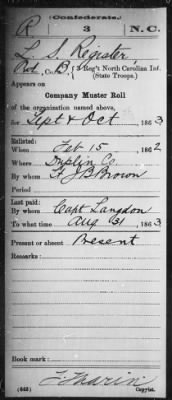 (Confederate.)
R 3 N.C.
L. S. Register,
Pvt, Co. B, 3 Reg't North Carolina Inf.
(State Troops.)
Appears on
Company Muster Roll
of the organization named above,
for Sept & Oct, 1863
Enlisted:
When Feb 15, 1862
Where Duplin Co.
By whom J B Brown
Period
Last paid:
By whom Capt Langdon
To what time Aug 31, 1863
Present or absent Present
Remarks:
Book mark:
(642) Copyist.